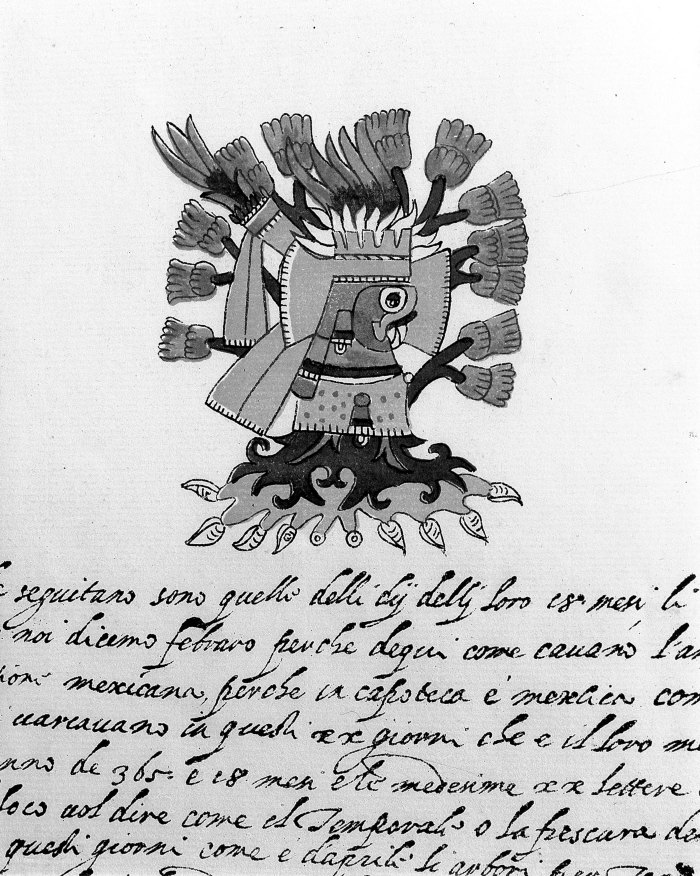 seguitano sono quelle delli dij dellj loro 18 mesi li
noi dicemo febraro perche dequi come cauano l'an
mexicana, perche in capoteca e mexica com
uarcauano in questi xx giorni che e il loro me
nno de 365 e 18 mesi e le medesime xx lettere
loco uol dire come il Temporale o la frescura de
questi giorni come e d'aprile li arbori